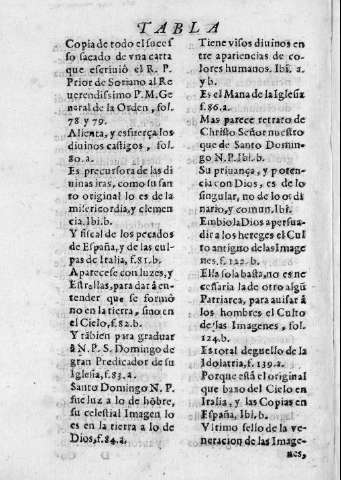 TABLA
Copia de todo el suces
so sacado de vna carta
que escriuió el R. P.
Prior de Soriano al Re
uerendissimo P. M. Ge
neral de la Orden, fol.
78 y 79.
Alienta, y esfuerça los
diuinos castigos, fol.
80.a.
Es precursora de las di
uinas iras, como su san
to original lo es de la
misericordia, y clemen
cia. Ibi.b.
Y fiscal de los pecados
de España, y de las cul
pas de Italia, f.81.b.
Aparecese con luzes, y
Estrellas, para dar á en
tender que se formó
no en la tierra, sino en
el Cielo, f.82.b.
Y tābien para graduar
à N. P. S. Domingo de
gran Predicador de su
Iglesia, f.83.a.
Santo Domingo N. P.
fue luz a lo de hōbre,
su celestial Imagen lo
es en la tierra a lo de
Dios, f.84.a.
Tiene visos diuinos en
tre apariencias de co-
lores humanos. Ibi. a.
y b.
Es el Mana de la Iglesia
f.86.a.
Mas parece retrato de
Christo Señor nuestro
que de Santo Domin-
go N.P. Ibi.b.
Su priuança, y poten-
cia con Dios, es de lo
singular, no de lo or di
nario, y comun. Ibi.
Embiola Dios a persua-
dir a los hereges el Cul
to antiguo de las Image
nes. f.122.b.
Ella sola basta, no es ne
cessaria la de otro algū
Patriarca, para auisar á
los hombres el Culto
de las Imagenes, fol.
124.b.
Es total deguello de la
Idolatria, f.139.a.
Porque está el original
que baxo del Cielo en
Italia, y las Copias en
España, Ibi.b.
Vltimo sello de la ve-
neracion de las Image-
nes,